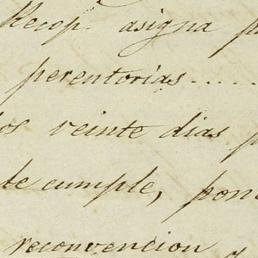 Recop. asigna
perentorias.....
los veinte dias
te cumple, pon
reconvencion